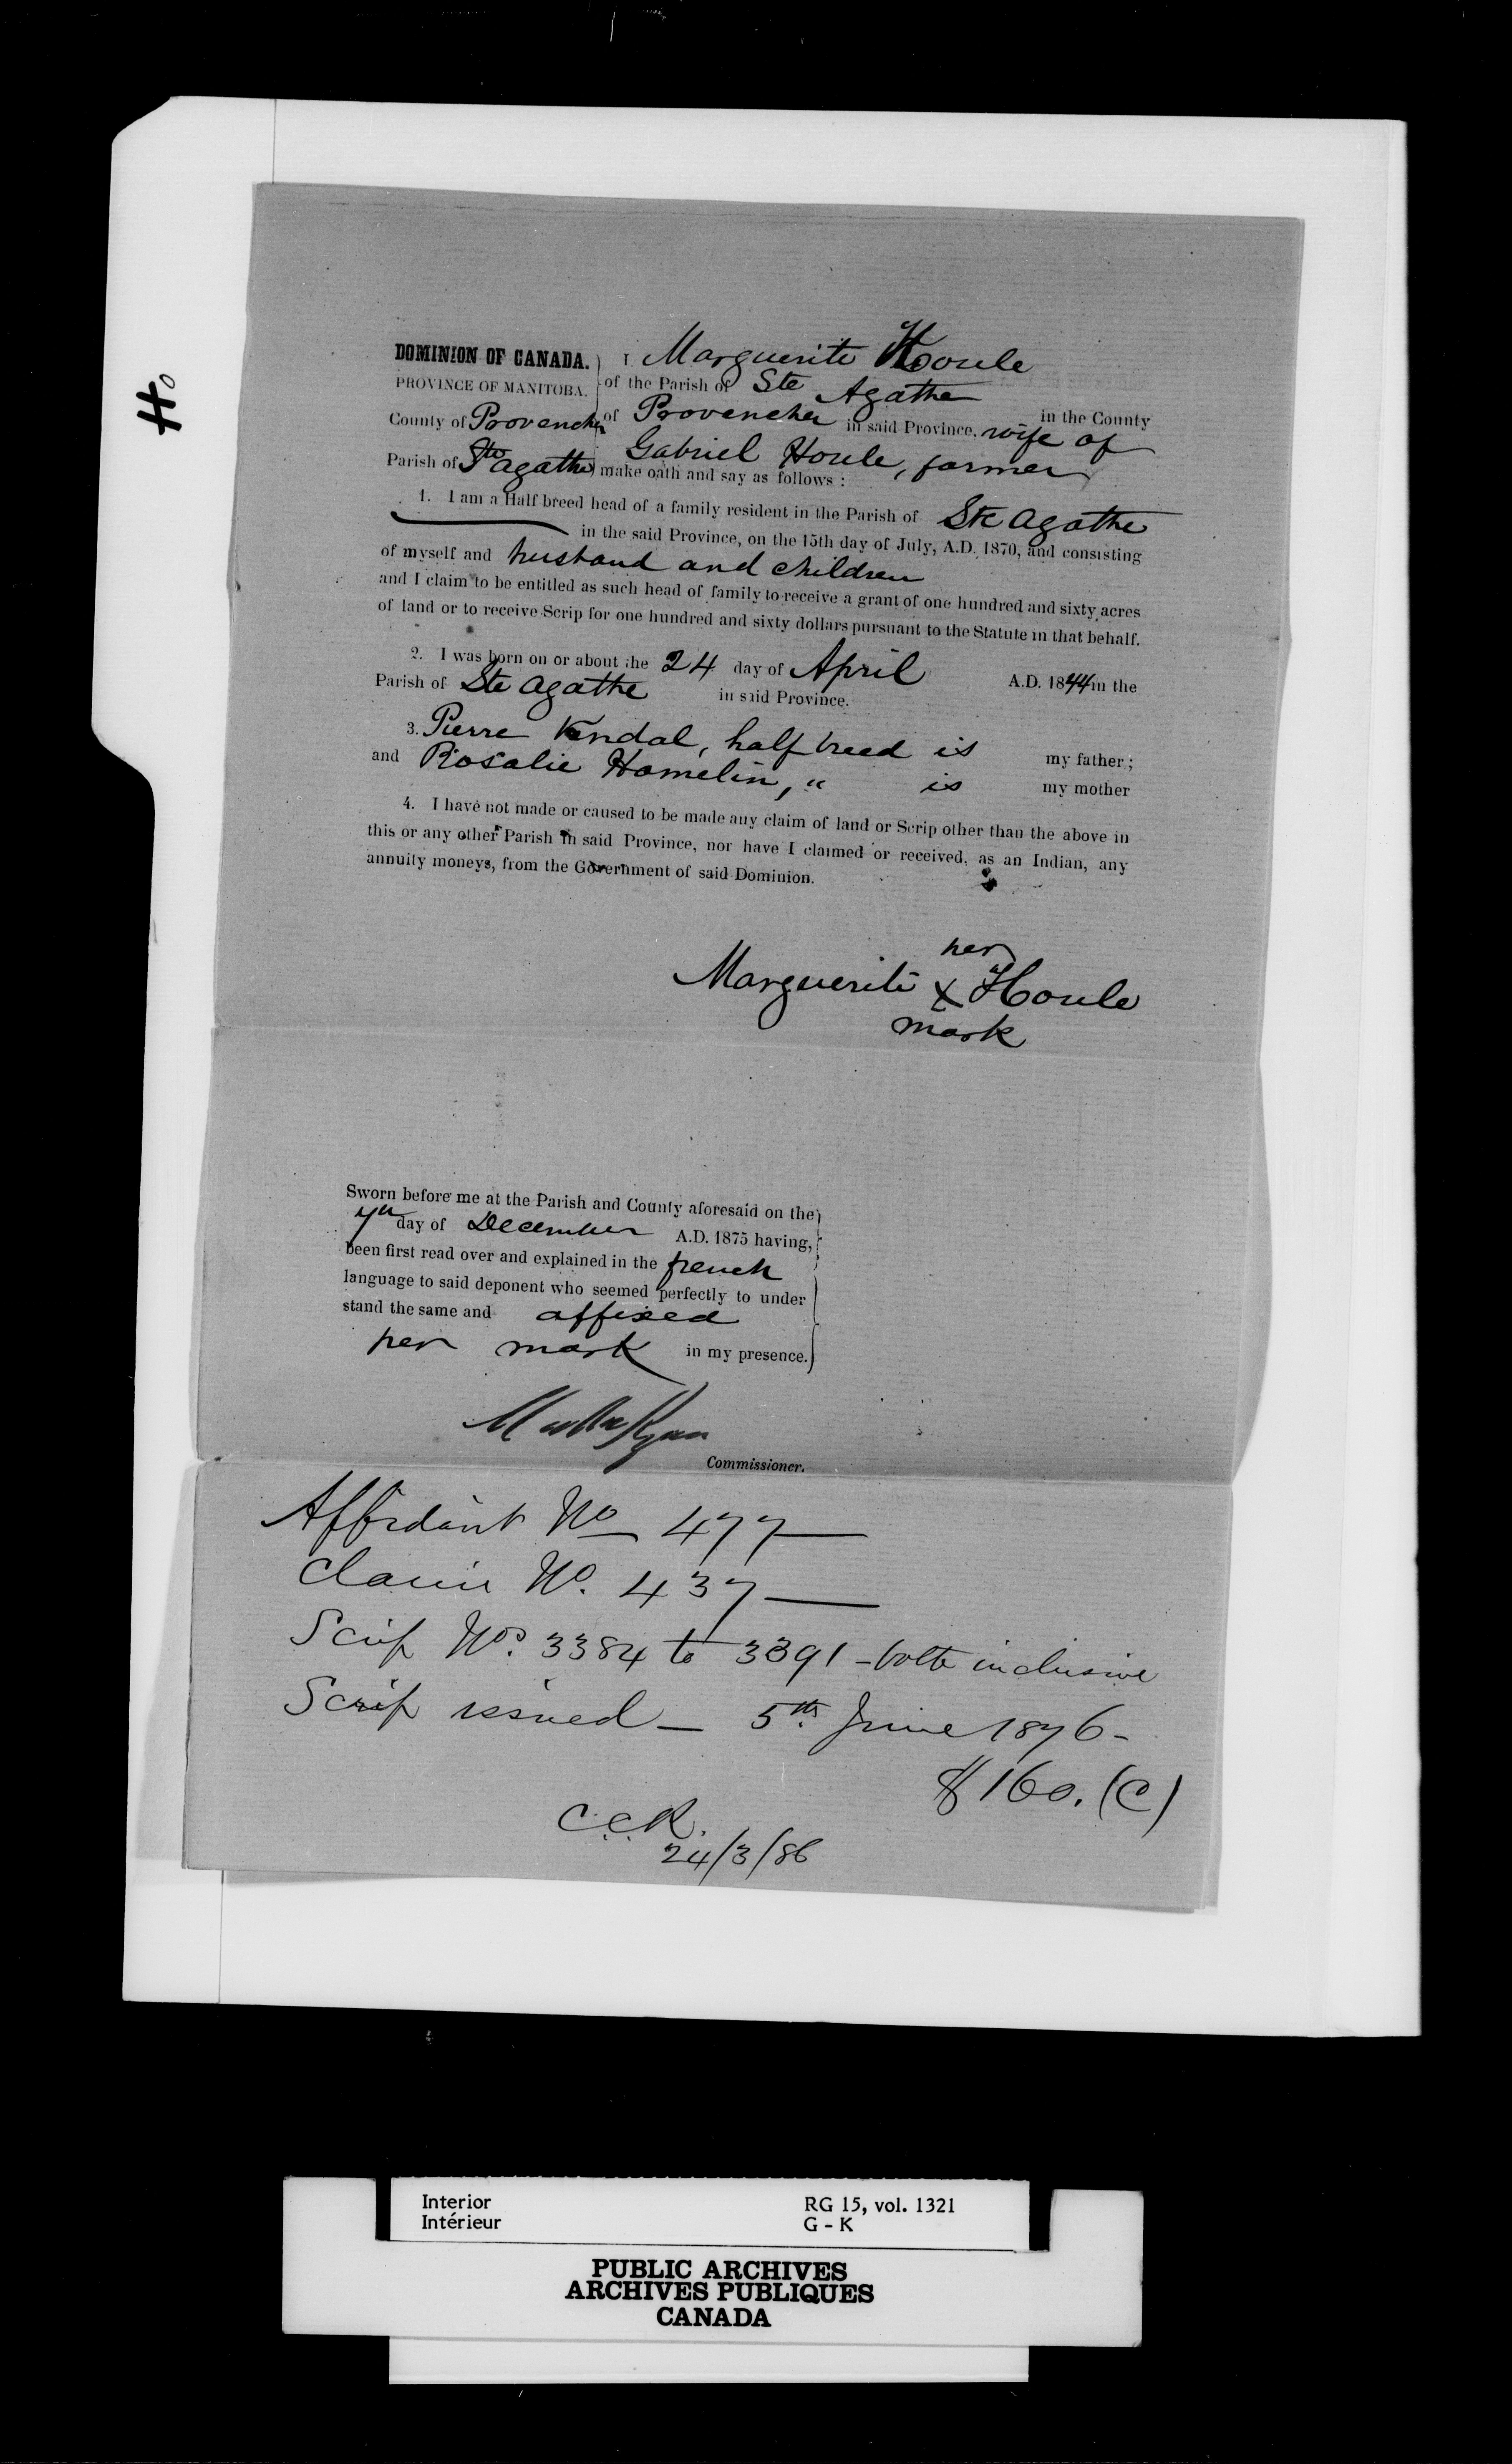 Ho
DOMINION OF CANADA.
PROVINCE OF MANITOBA.
County of Provencher
Parish of Ste Agathe
I Marguerite Houle
of the Parish of Ste Agathe in the County
of Provencher in said Province, wife of
Gabriel Houle, farmer
make oath and say as follows :
1. I am a Half-breed head of a family resident in the Parish of Ste Agathe
in the said Province, on the 15th day of July, A.D. 1870, and consisting
of myself and husband and children
and I claim to be entitled as such head of family to receive a grant of one hundred and sixty acres
of land or to receive Scrip for one hundred and sixty dollars pursuant to the Statute in that behalf.
2. I was born on or about the 24 day of April A.D. 1844 in the
Parish of Ste Agathe in said Province.
3. Pierre Kendal, half breed is my father ;
and Rosalie Hamelin, " is my mother
4. I have not made or caused to be made any claim of land or Scrip other than the above in
this or any other Parish in said Province, nor have I claimed or received, as an Indian, any
annuity moneys, from the Government of said Dominion.
her
Marguerite x Houle
mark
Sworn before me at the Parish and County aforesaid on the
7th day of December A.D. 1875 having,
been first read over and explained in the french
language to said deponent who seemed perfectly to under
stand the same and affixed
her mark in my presence.
Ryan
Commissioner.
Affidavit No 477
Claim No. 437
Scrip Nos. 3384 to 3391 - both inclusive
Scrip issued - 5th June 1876 -
$160. (C)
C.C.R.
24/3/86
Interior RG 15, vol. 1321
Intérieur G - K
PUBLIC ARCHIVES
ARCHIVES PUBLIQUES
CANADA